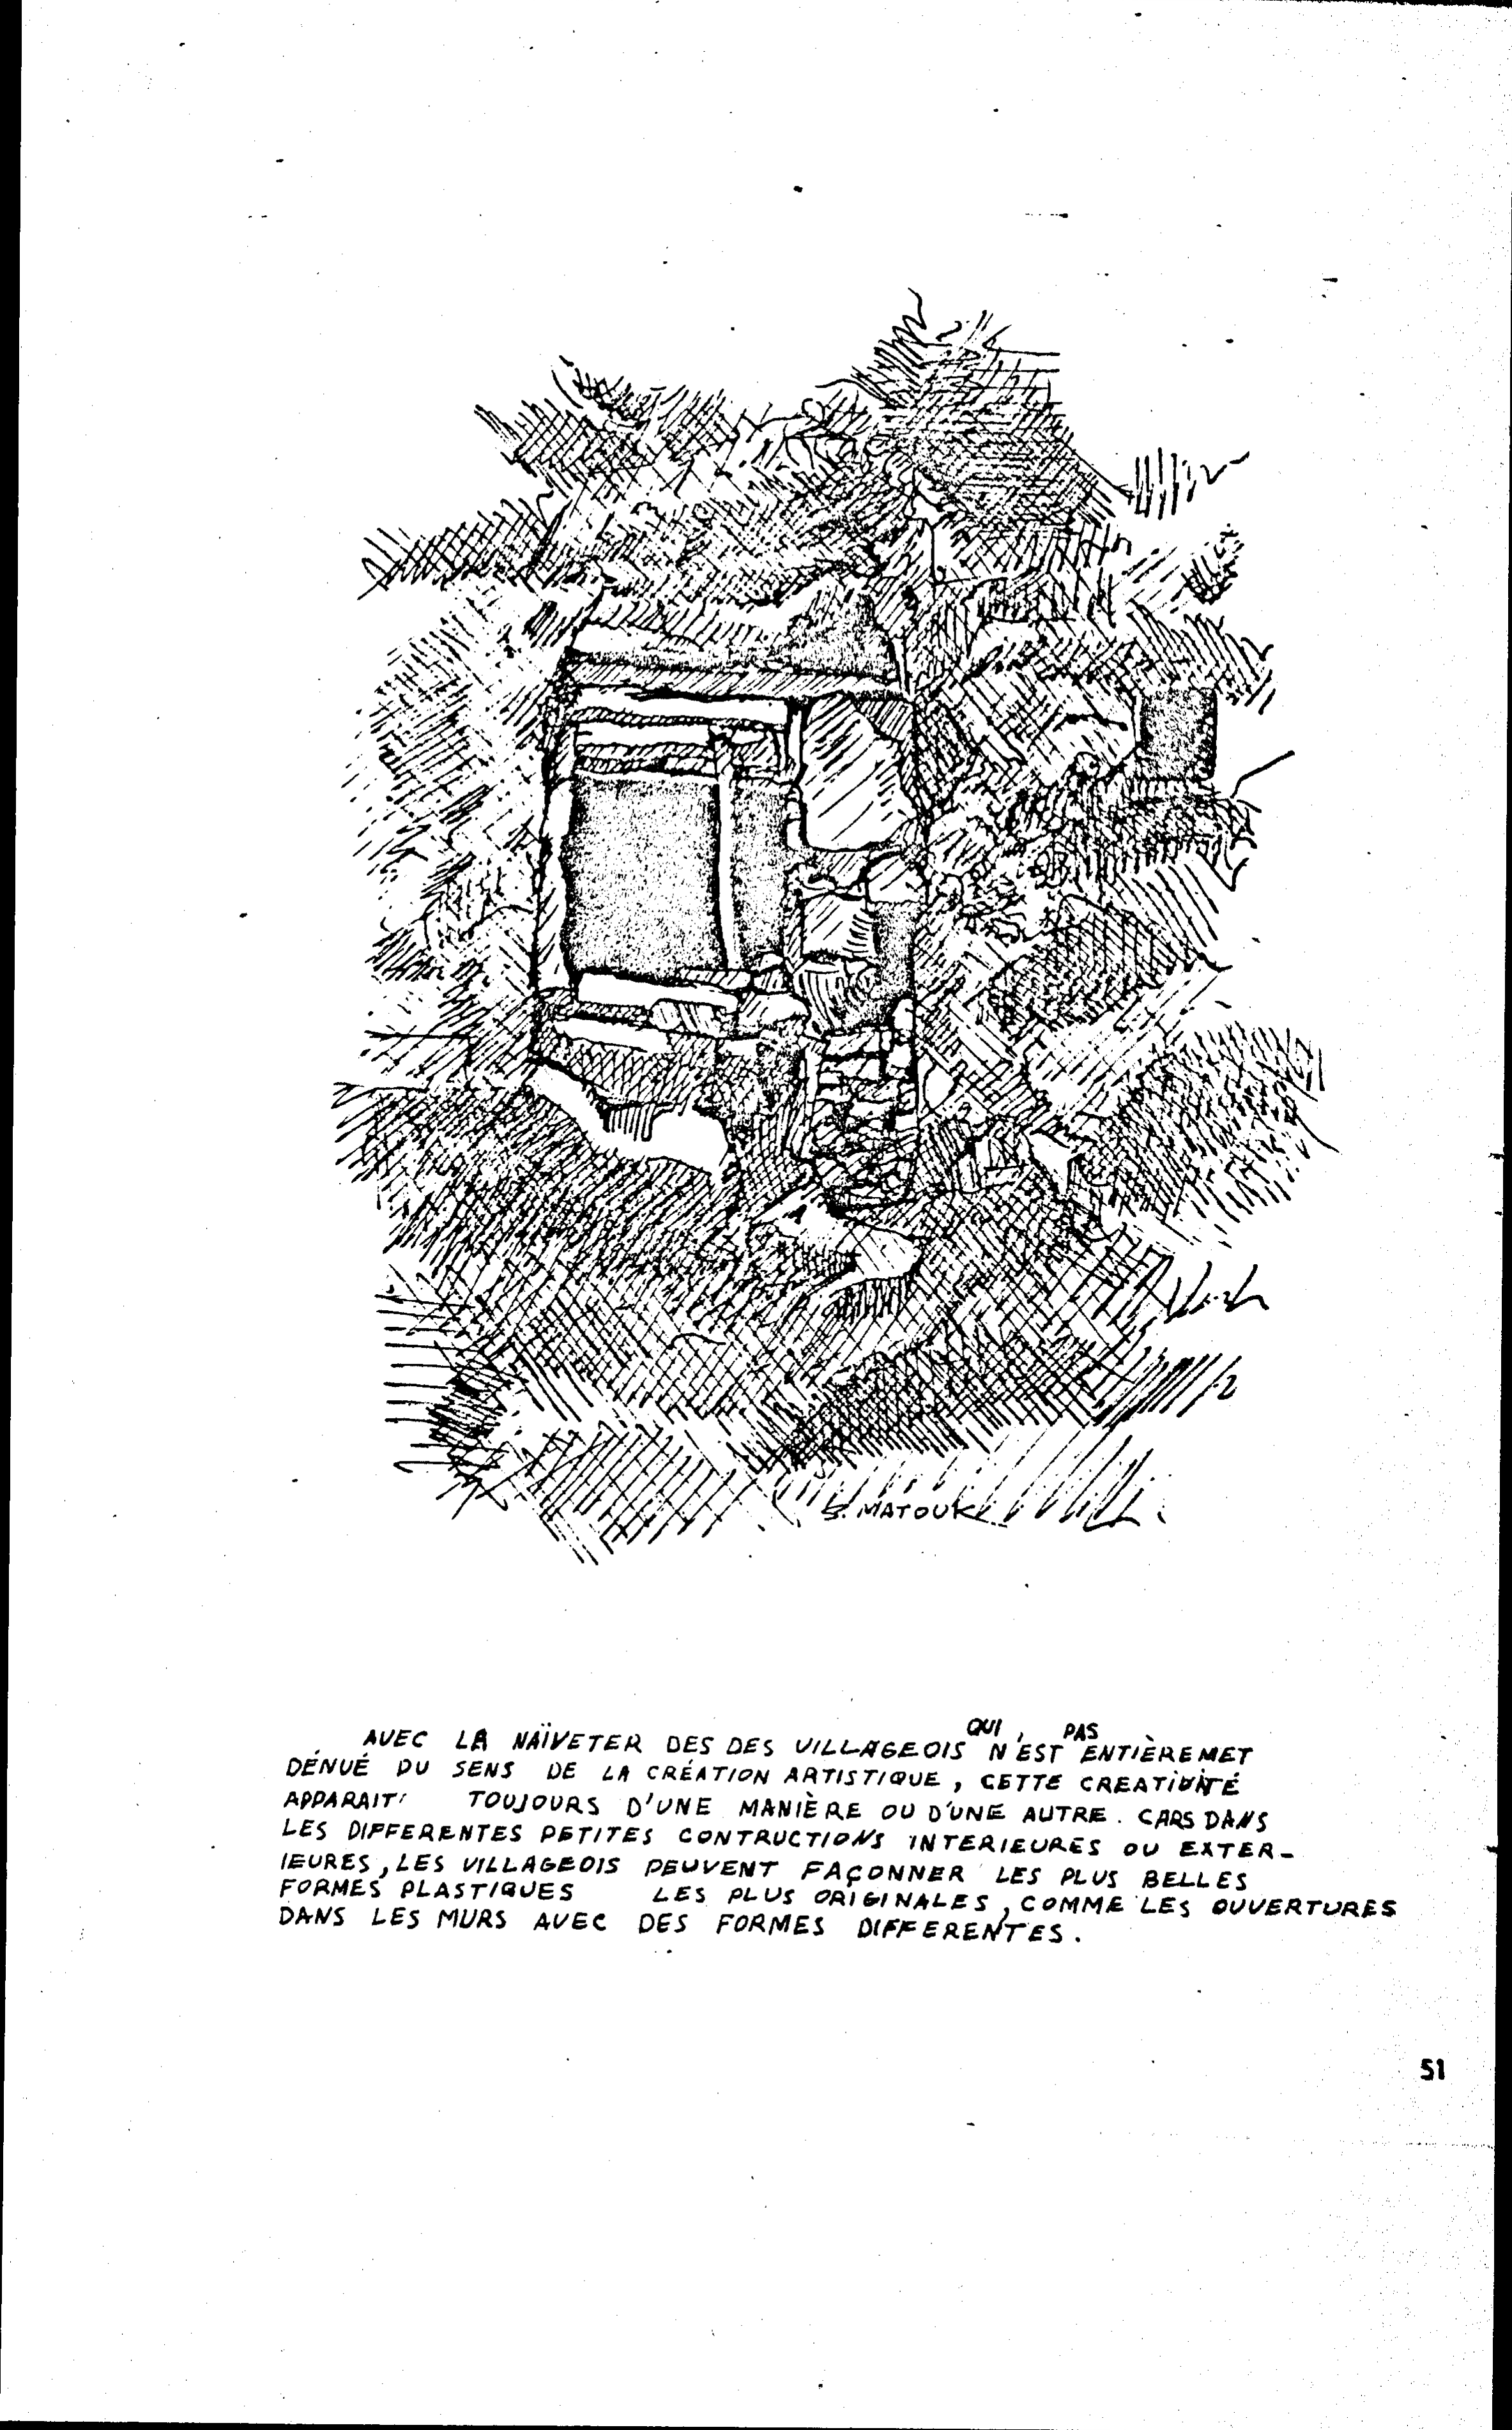 S. MATOUK
AVEC LA NAÏVETER DES DES VILLAGEOIS QUI N'EST PAS ENTIÈREMET
DÉNUÉ DU SENS DE LA CRÉATION ARTISTIQUE, CETTE CREATIVITÉ
APPARAIT TOUJOURS D'UNE MANIÈRE OU D'UNE AUTRE. CARS DANS
LES DIFFERENTES PETITES CONTRUCTIONS INTERIEURES OU EXTER-
IEURES, LES VILLAGEOIS PEUVENT FAÇONNER LES PLUS BELLES
FORMES PLASTIQUES LES PLUS ORIGINALES, COMME LES OUVERTURES
DANS LES MURS AVEC DES FORMES DIFFERENTES.
51